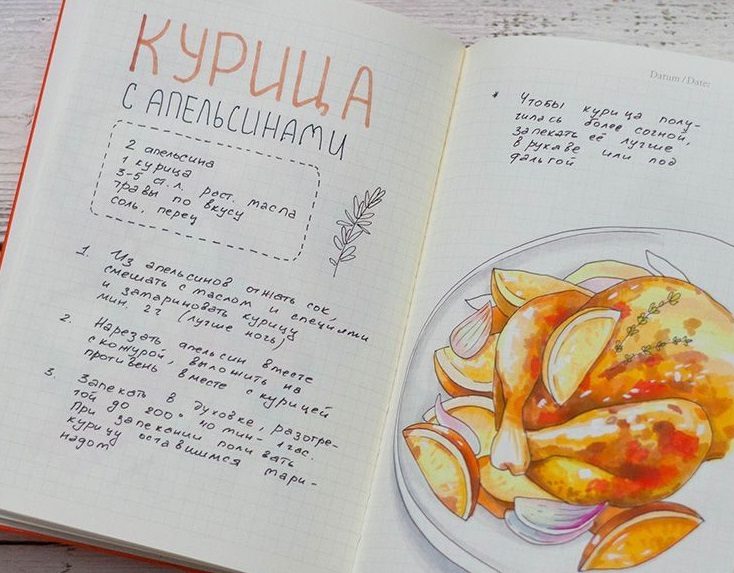 КУРИЦА
С АПЕЛЬСИНАМИ
2 апельсина
1 курица
3-5 ст.л. раст. масла
травы по вкусу
соль, перец
1. Из апельсинов отжать сок,
смешать с маслом и специями
и замариновать курицу
мин. 2ч (лучше ночь)
2. Нарезать апельсин вместе
с кожурой, выложить на
противень вместе с курицей
3. Запекать в духовке, разогре-
той до 200° 40 мин-1час.
При запекании поливать
курицу оставшимся мари-
надом
Datum / Date:
* Чтобы курица полу-
чилась более сочной,
запекать её лучше
в рукаве или под
фальгой